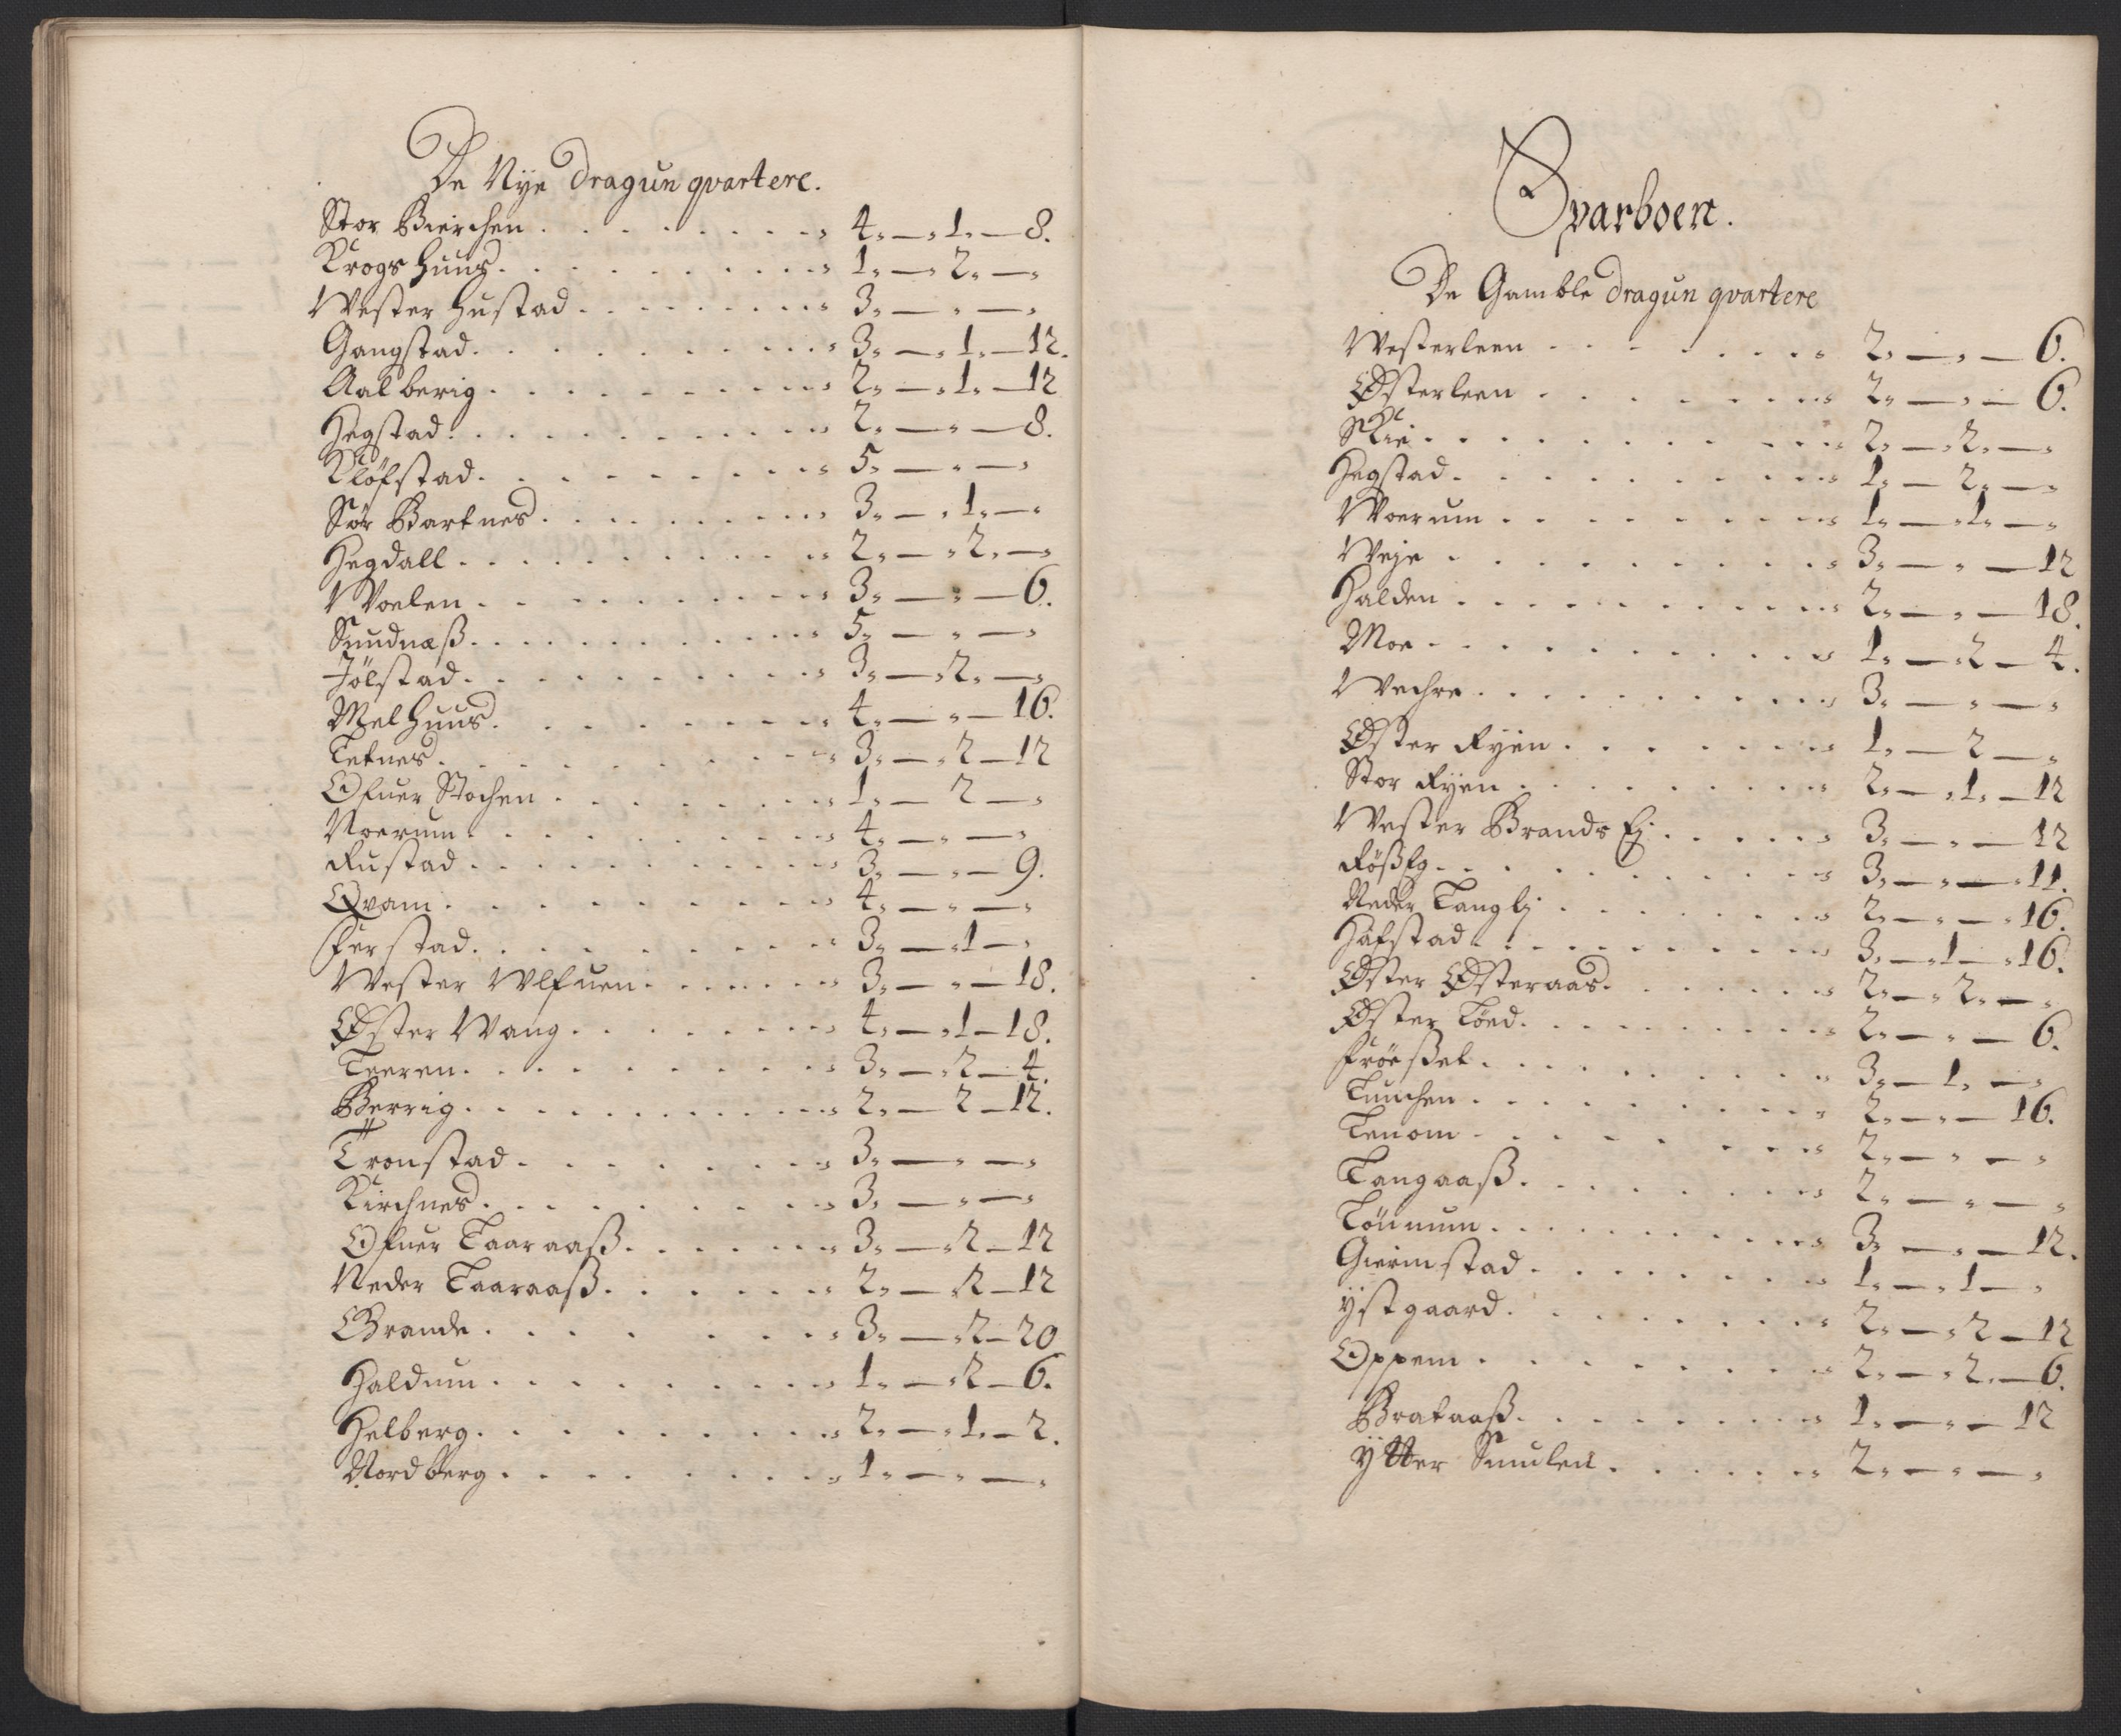 De Nÿe dragun qvartere.
Stor Bierchen . . . . . . . . 4. — . 1. — 8.
Krogs huus . . . . . . . . 1. — . 2. — .
Wester Hustad . . . . . . . . 3. — . — .
Gangstad . . . . . . . . 3. — . 1. — 12.
Aalberig . . . . . . . . 2. — . 1. — 12
Hegstad . . . . . . . . 2. — . — 8.
Kløfstad . . . . . . . . 5. — . — .
Sør Bartnes . . . . . . . . 3. — . 1. — .
Hegdall . . . . . . . . 2. — . 2. — .
Woelen . . . . . . . . 3. — . — 6.
Sundnæß . . . . . . . . 5. — . — .
Jölstad . . . . . . . . 3. — . 2. — .
Melhuus . . . . . . . . 4. — . — 16.
Tetnes . . . . . . . . 3. — . 2 — 12
Ofuer Stochen . . . . . . . . 1. — 2 — .
Noerum . . . . . . . . 4. — . — .
Rustad . . . . . . . . 3. — . — 9.
Qvam . . . . . . . . 4. — . — .
Ferstad . . . . . . . . 3. — . 1 — .
Wester Wlfuen . . . . . . . 3. — . — 18.
Øster Wang . . . . . . . . 4. — . 1 — 18.
Teeren . . . . . . . . 3. — . 2 — 4.
Berrig . . . . . . . . 2. — 2 — 12.
Tronstad . . . . . . . . 3. — . — .
Kirchnes . . . . . . . . 3. — . — .
Ofuer Taaraaß . . . . . . 3. — . 2 — 12
Neder Taaraaß . . . . . . 2. — . 2 — 12
Grande . . . . . . . . 3. — . 2 — 20
Haldum . . . . . . . . 1. — . 2 — 6.
Helberg . . . . . . . . 2. — . 1. — 2.
Nordberg . . . . . . . . 1. — . — .
Sparboen.
De Gamble dragun qvartere
Westerleen . . . . . . . 2. — . — 6.
Østerleen . . . . . . . 2. — . — 6.
Skie . . . . . . . . 2. — . 2. — .
Hegstad . . . . . . . . 1. — 2. — .
Woerum . . . . . . . . 1. — . 1. — .
Weje . . . . . . . . 3. — . — 12
Halden . . . . . . . . 2. — . — 18.
Moe . . . . . . . . 1. — . 2 — 4.
Wechre . . . . . . . . 3. — . — .
Øster Rÿen . . . . . . . 1. — 2 — .
Stor Rÿen . . . . . . . . 2. — . 1. — 12
Wester Brands Ej . . . . . 3. — . — 12
Rößeg . . . . . . . . 3. — . — . 11.
Neder Langlj . . . . . . . 2. — . — . 16.
Hafstad . . . . . . . . 3. — . 1 — . 16.
Øster Østeraas . . . . . . 2. — . 2. — .
Øster Töed . . . . . . . . 2. — . — 6.
Fröeßet . . . . . . . . 3. — 1. — .
Tuuchen . . . . . . . . 2. — . — 16.
Tenom . . . . . . . . 2. — . — .
Langaaß . . . . . . . . 2. — . — .
Tönnum . . . . . . . . 3. — . — 12.
Gierinstad . . . . . . . 1. — . 1 — .
ÿstgaard . . . . . . . 2. — . 2 — 12
Oppem . . . . . . . . 2. — . 2. — 6.
Brataaß . . . . . . . . 1. — . — 12
ÿtter Suulen . . . . . . 2. — . — .